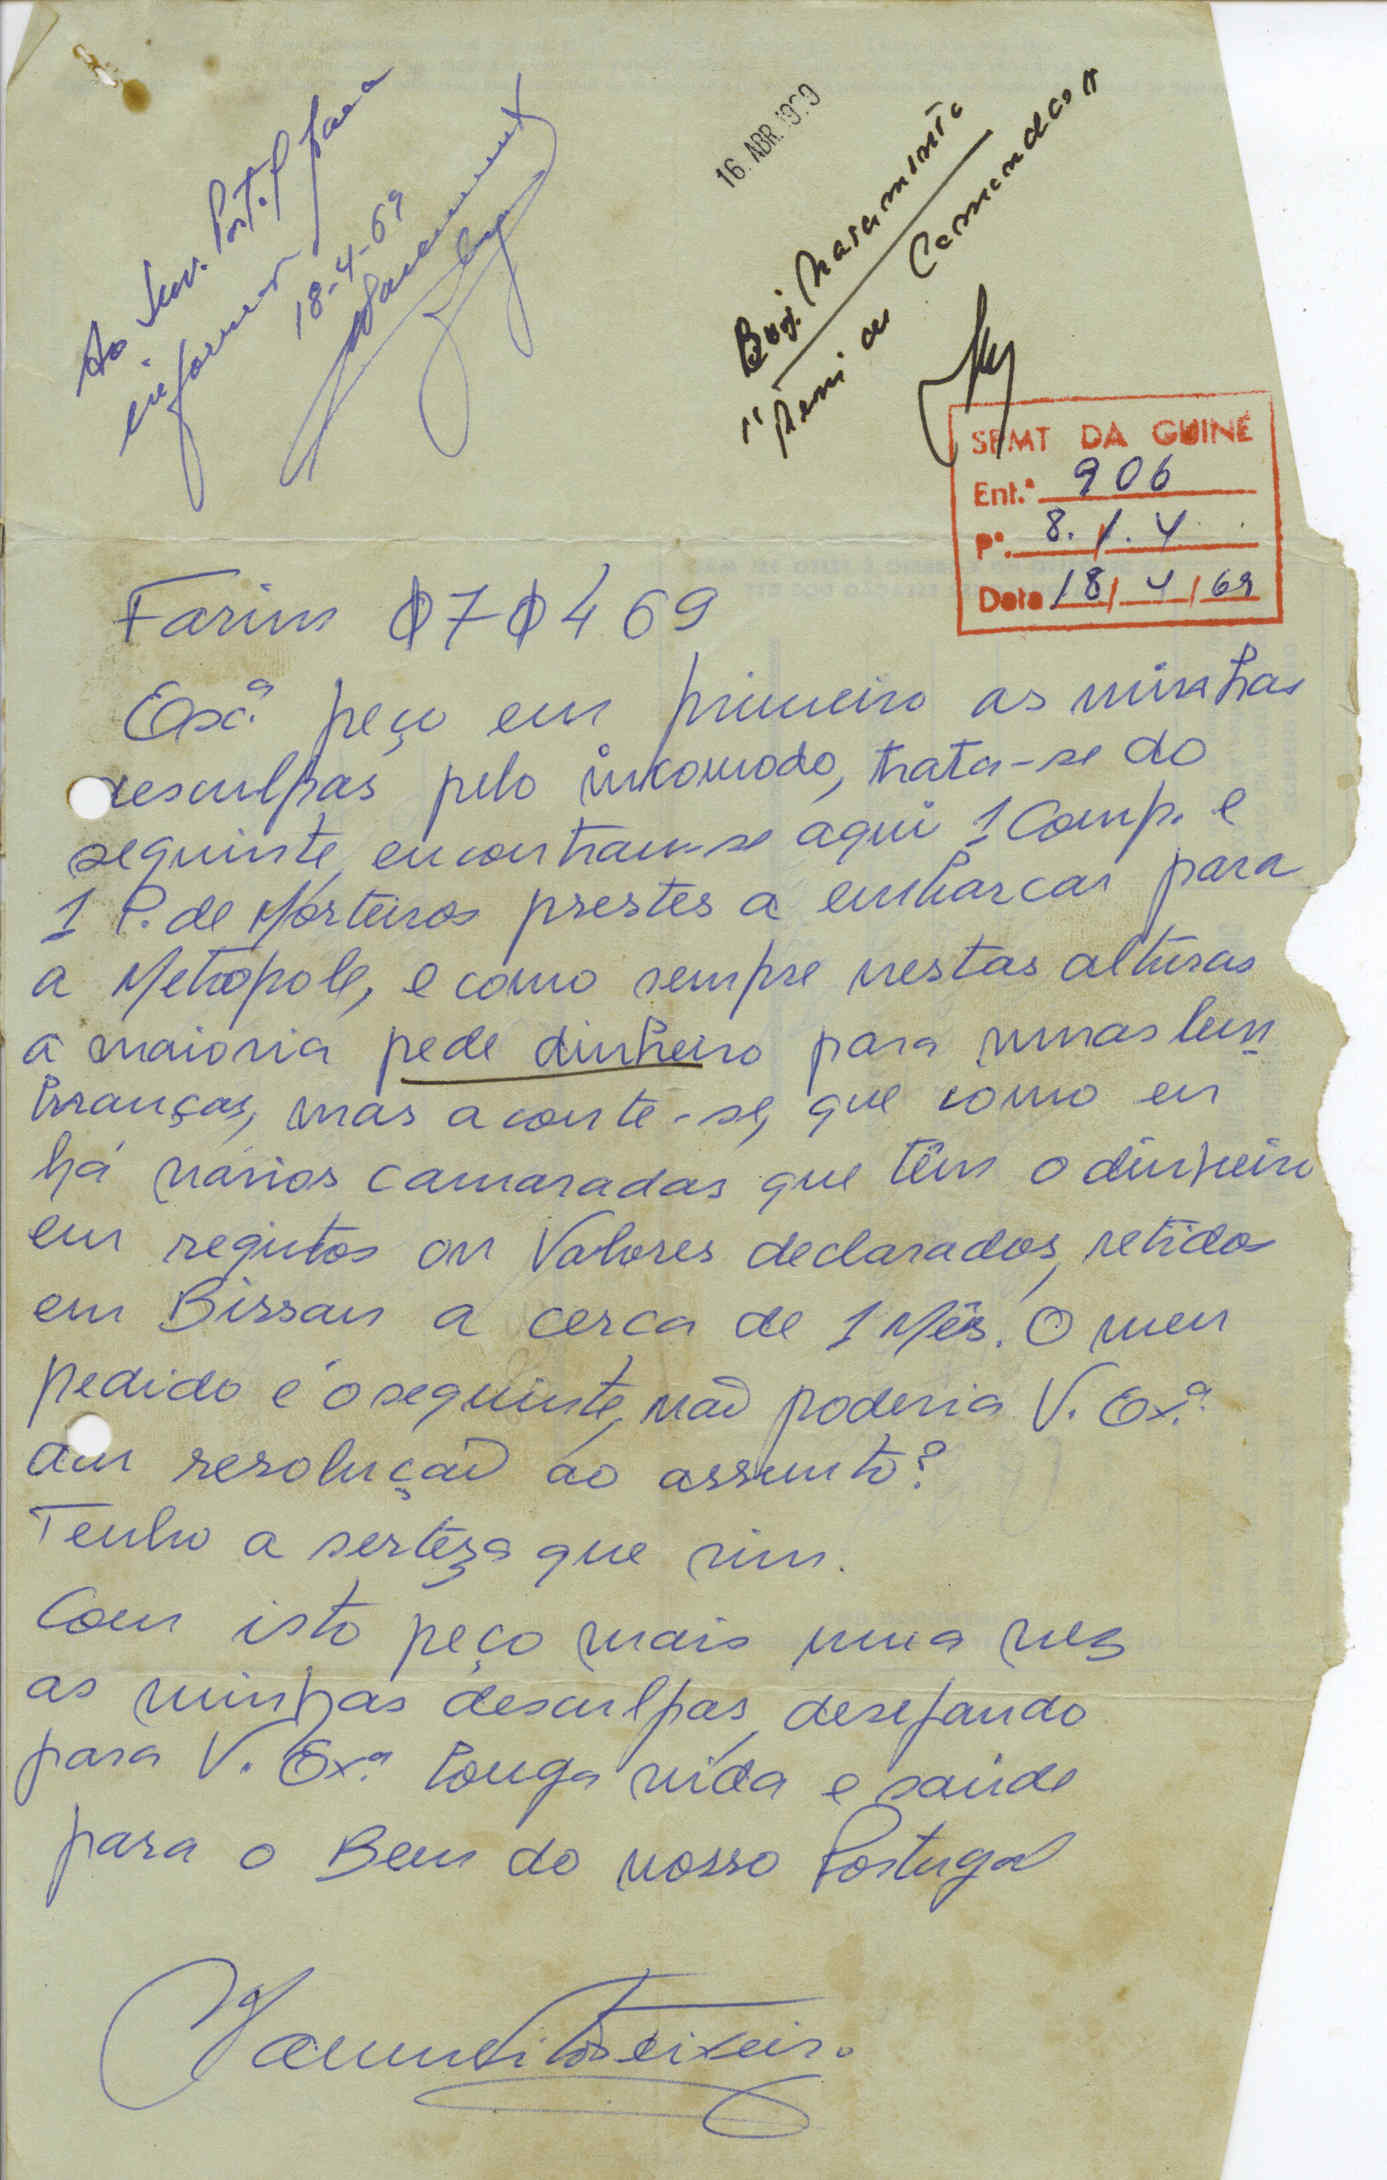 Ao Serv. Postal para
informar
18-4-69
16 ABR. 1969
SPMT DA GUINÉ
Ent.ª 906
Pº. 8. / . 4
Data 18 / 4 / 69
Farim 070469
Excª peço em primeiro as minhas
desculpas pelo incomodo, trata-se do
seguinte, encontram-se aqui 1 Comp. e
1 P. de Morteiros prestes a embarcar para
a Metropole, e como sempre nestas alturas
a maioria pede dinheiro para umas lem
branças, mas aconte-se, que como eu
há vários camaradas que têm o dinheiro
em registos ou Valores declarados, retidos
em Bissau a cerca de 1 Mês. O meu
pedido é o seguinte, não poderia V. Ex.ª
dar resolução ao assunto?
Tenho a serteza que sim.
Com isto peço mais uma vez
as minhas desculpas, desejando
para V. Ex.ª longa vida e saúde
para o Bem do nosso Portugal
Teixeira